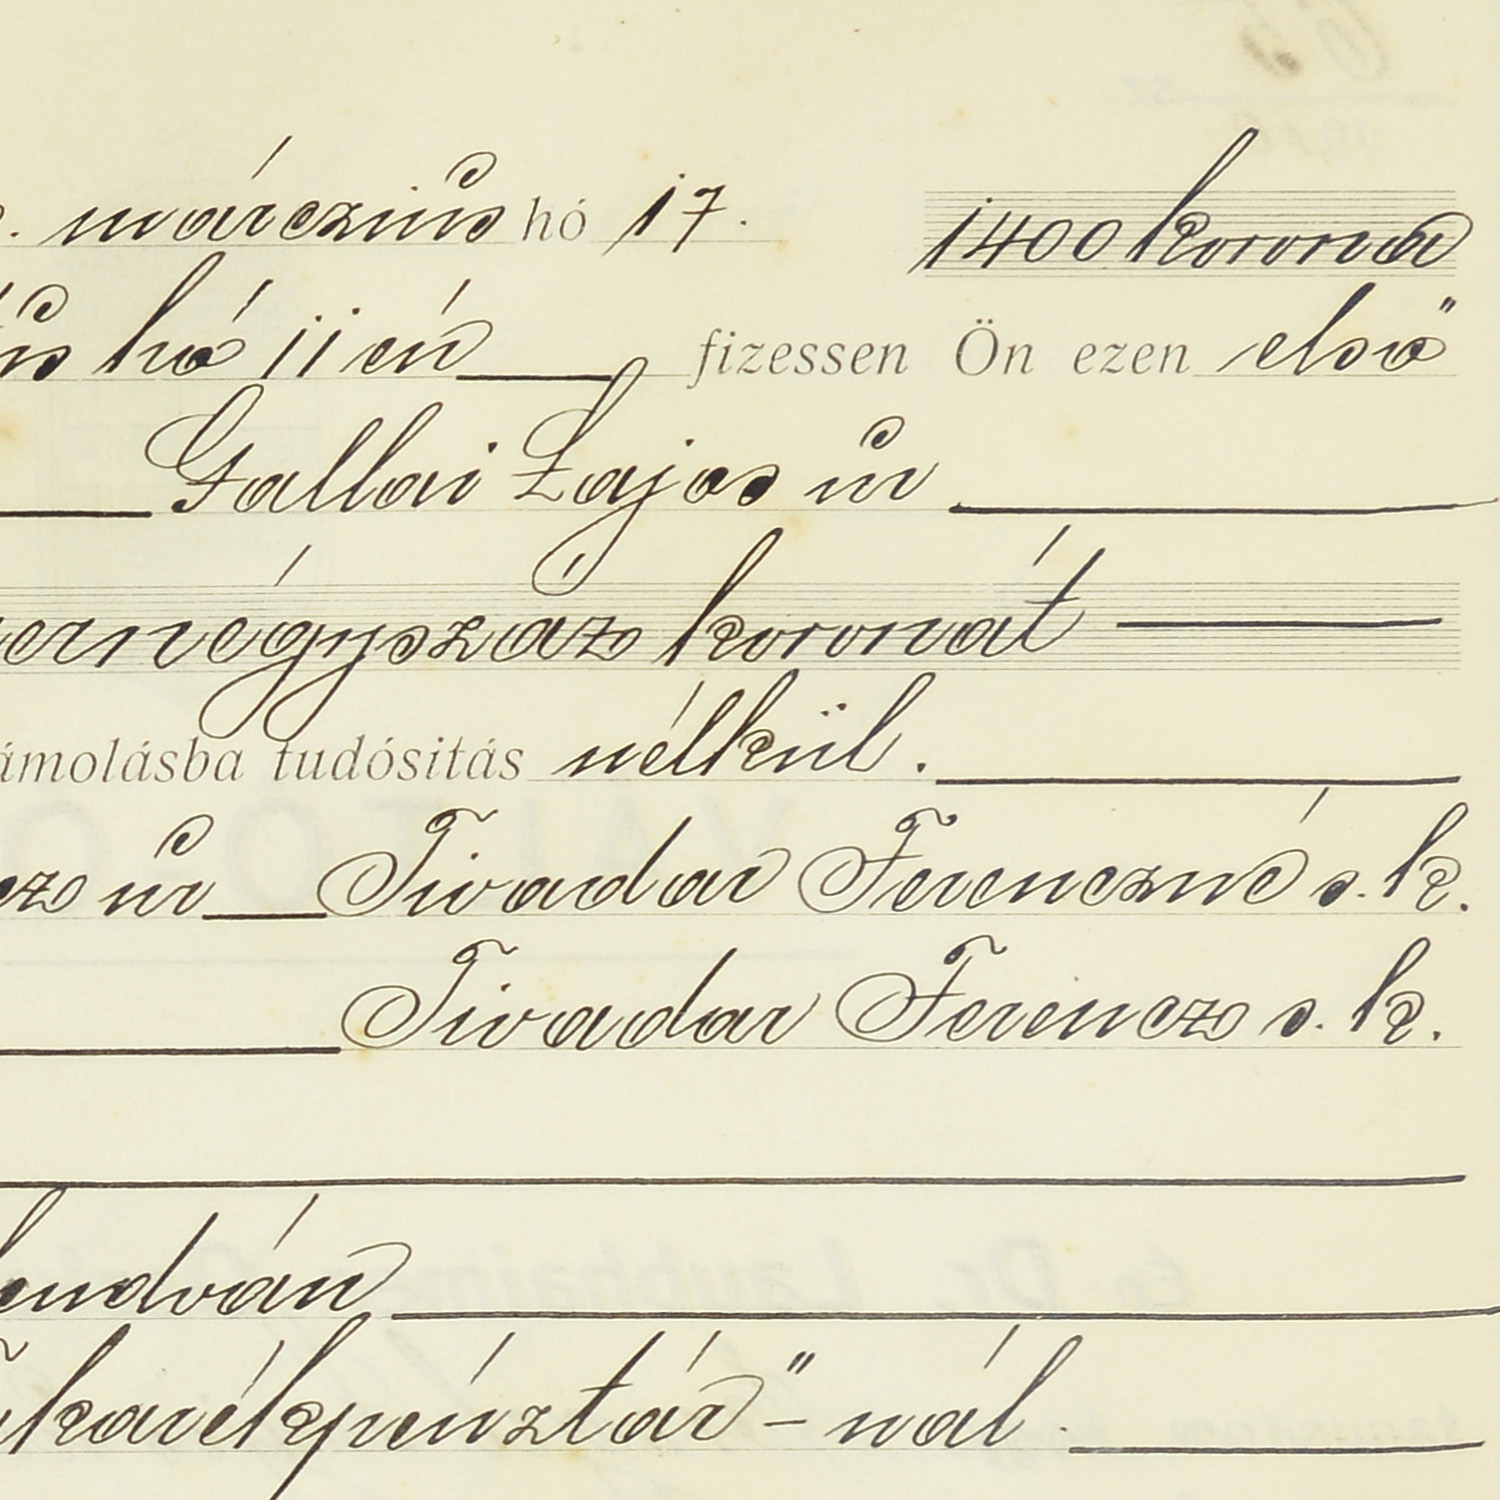 márczius hó 17. 1400 korona
hó 11 én fizessen Ön ezen első
Gallai Lajos úr
ernégyszáz koronát
ámolásba tudósitás nélkül.
úr Tivadar Ferenczné s. k.
Tivadar Ferencz s. k.
endván
karékpénztár"-nál.